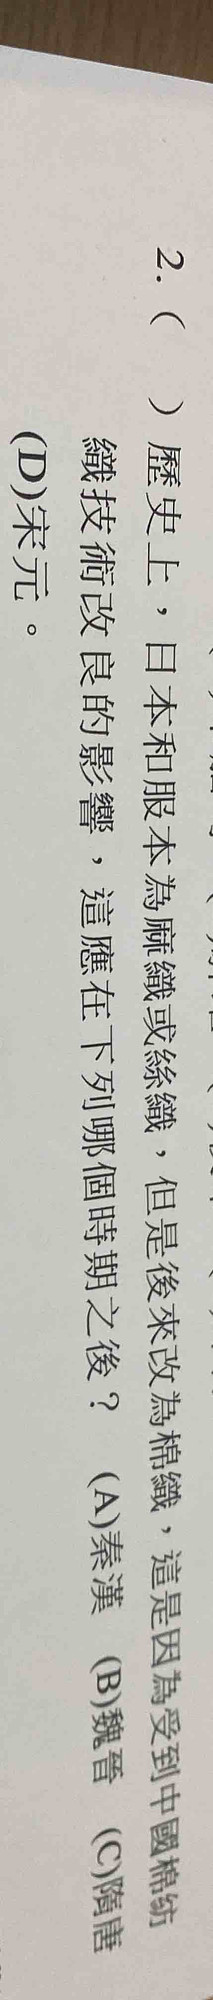 2. (　　) 歷史上，日本和服本為麻織或絲織，但是後來改為棉織，這是因為受到中國棉紡
織技術改良的影響，這應在下列哪個時期之後？　(A)秦漢　(B)魏晉　(C)隋唐
(D)宋元。